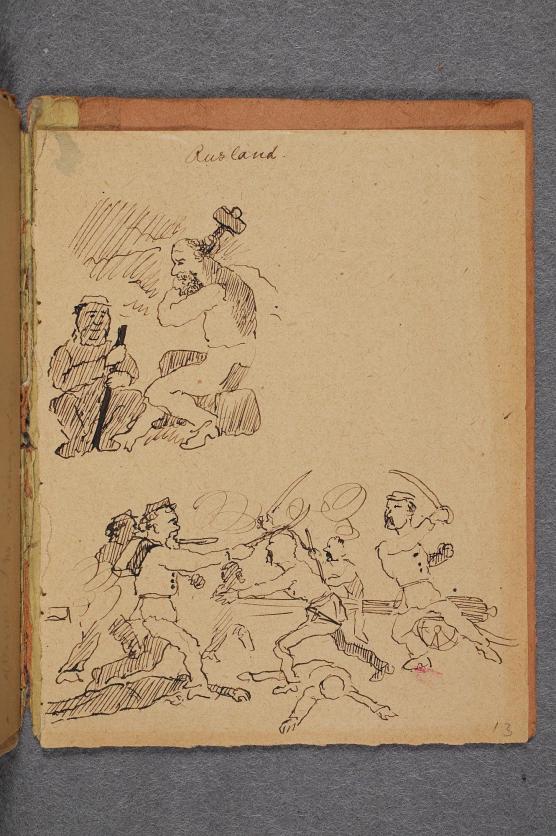 Rusland.
13